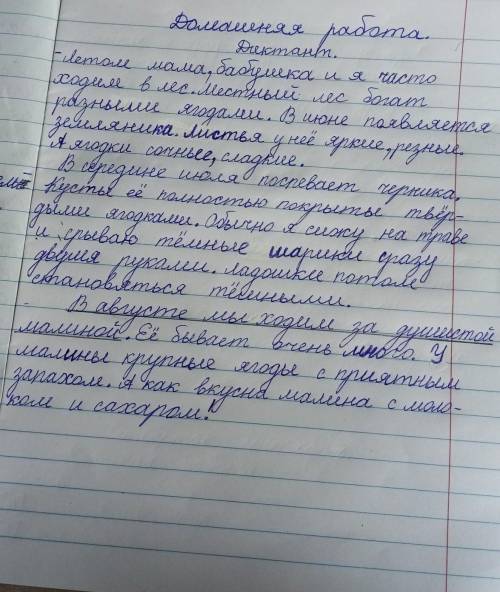 Домашняя работа.
Диктант.
-Летом мама, бабушка и я часто
ходим в лес. Местный лес богат
разными ягодами. В июне появляется
земляника. Листья у неё яркие, резные.
А ягодки сочные, сладкие.
В середине июля поспевает черника.
Кусты её полностью покрыты твёр-
дыми ягодками. Обычно я сижу на траве
и срываю тёмные шарики сразу
двумя руками. Ладошки потом
становяться тёмными.
В августе мы ходим за душистой
малиной. Её бывает очень много. У
малины крупные ягоды с приятным
запахом. А как вкусна малина с моло-
ком и сахаром!